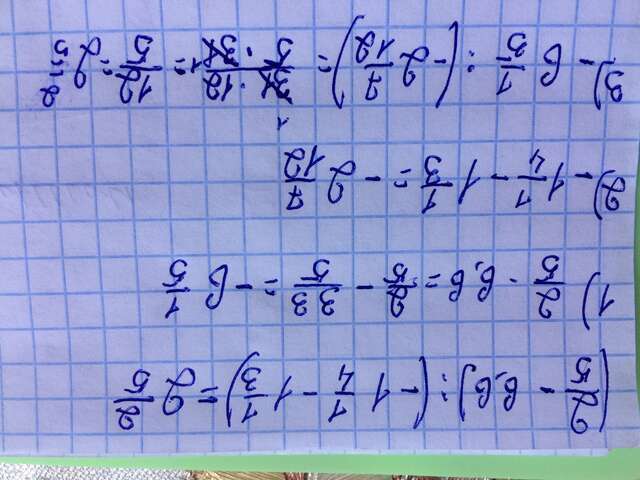 (2/5 - 6,6) : (-1 1/4 - 1 1/3) = 2 2/5
1) 2/5 - 6,6 = 2/5 - 33/5 = -6 1/5
2) -1 1/4 - 1 1/3 = -2 7/12
3) -6 1/5 : (-2 7/12) = 31 · 12 / 5 · 31 = 12/5 = 2 2/5